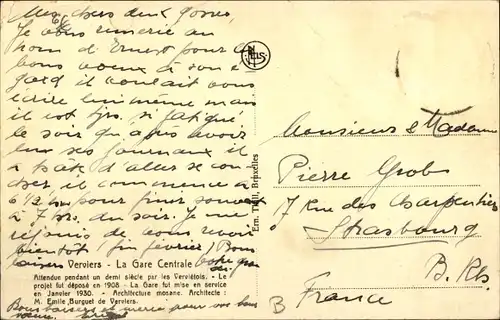 Mes chers deux gosses,
Je vous remercie au
nom d'Ernest pour les
bons voeux à son é-
gard il voulait vous
écrire lui même mais
il est tjrs. si fatigué
le soir qu'après avoir
lu ses journaux il
a hâte d'aller se cou-
cher, il commence à
6 ½ hrs pour finir souvent
à 7 hrs. du soir. Je me
réjouis de vous revoir
bientôt (fin février) Bons
baisers
Verviers - La Gare Centrale
Attendue pendant un demi siècle par les Verviétois. - Le
projet fut déposé en 1908 - La Gare fut mise en service
en Janvier 1930. - Architecture mosane. Architecte :
M. Emile Burguet de Verviers.
Bons baisers et merci pour vos bons
Ern. Thill, Bruxelles
NELS
Monsieur & Madame
Pierre Grob
7 Rue des Charpentiers
Strasbourg
B. Rh.
France